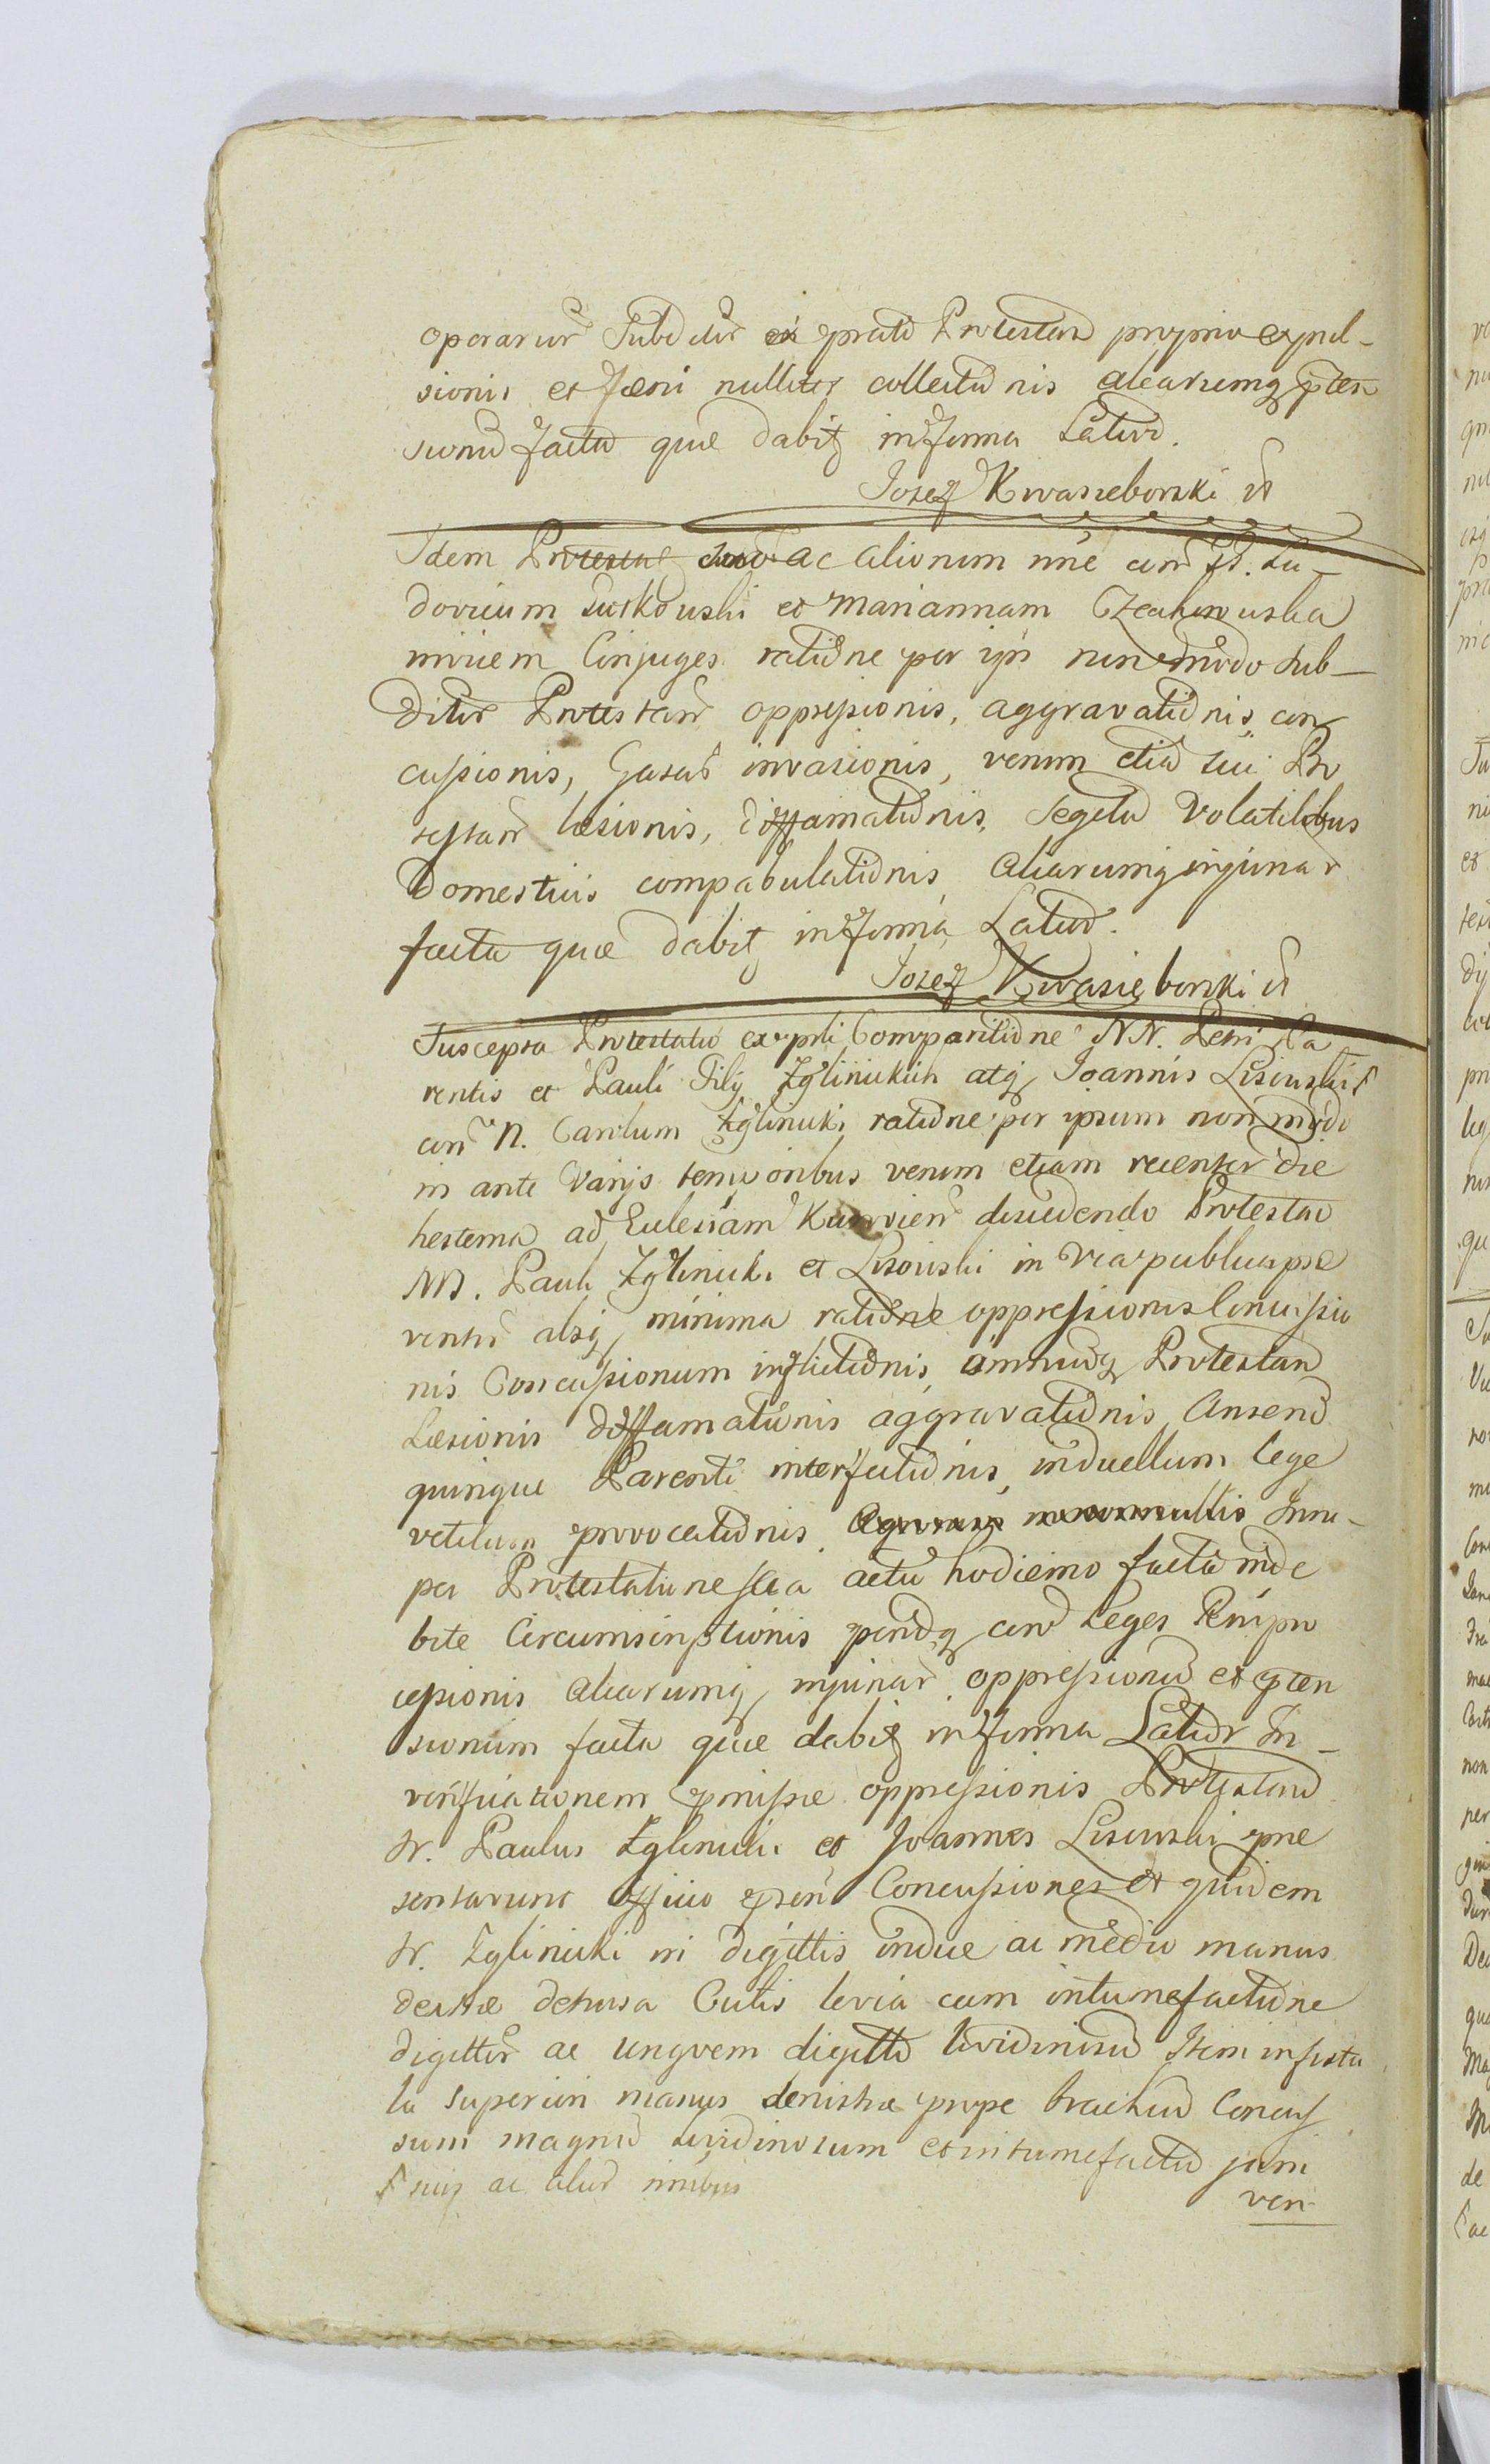 operarum Subditor ex prato Protestan proprio expul-
sionis et faeni nulliter collectionis aliarumq preten
sionum facta quae dabit in forma Latiori.
Jozef Kwasieborski
Idem Protestat suo ac aliorum nne con G. Lu-
dovicum Sutkowski et Mariannam
invicem Conjuges ratione per ipsos non modo sub-
ditor Protestan oppressionis, aggravationis, con
cussionis, Gazar invasionis, verum etia sui Pro
testan laesionis, diffamationis, Segetu Volatilibus
Domesticis compabulationis aliarumq injuriar
facta quae dabit in forma Latiori.
Jozef Kwasieborski
Suscepta Protestatio ex prli Comparitione NN. Petri Pa
rentis et Pauli Filij Zglinickich atq Joannis Lisowski
con N. Carolum Zglinicki ratione per ipsum non modo
in ante Varijs temporibus verum etiam recenter die
hesterna ad Ecclesiam discedendo Protestan
NN. Pauli Zglinicki et Lisowski in Via publica prae
ventor absq minima ratione oppressionis Concussio
nis Concussionum inflictionis, omniuq Protestan
Laesionis diffamationis aggravationis
quinque Parenti interfectionis, in duellum lege
vetitum provocationis Insu-
per Protestatione sua actu hodierno facta inde
bite Circumscriptionis con Leges
cessionis aliarumq injuriar oppressionu et preten
sionum facta quae dabit in forma Latiori In
verificationem praemissae oppressionis Protestan
N. Paulus Zglinicki et Joannes Lisowski prae
sentarunt Officio praesen Concussiones et quidem
N. Zglinicki in digittis indice ac medio manus
dextrae detrusa Cutis levia cum intumefactione
digittor ac ungvem digitti lividinosu Item in fistu
la superiori manus dexistrae prope brachiu Concus
sum magnu lividinosum et intumefactu jam
suis ac alior nnibus
ven-